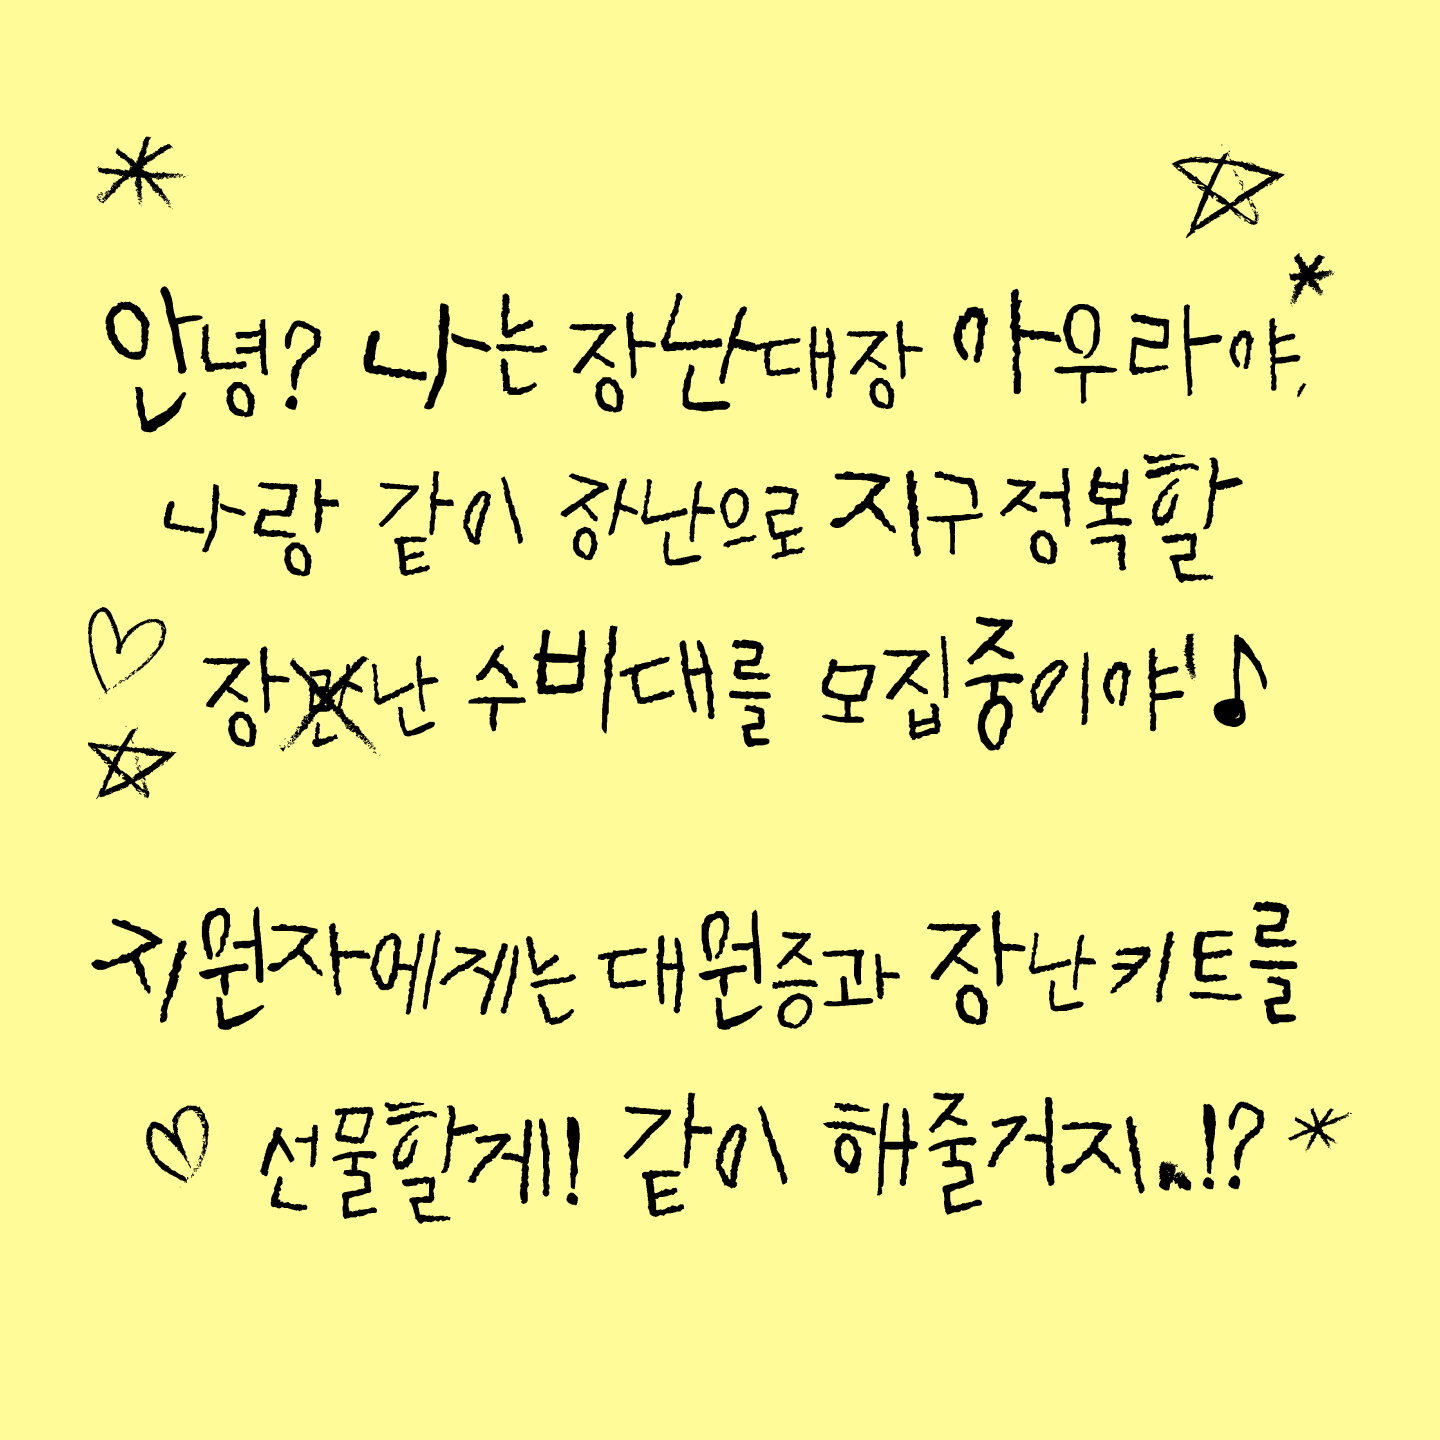 안녕? 나는 장난대장 아우라야,
나랑 같이 장난으로 지구정복할
장난 수비대를 모집중이야 ♪
지원자에게는 대원증과 장난키트를
선물할게! 같이 해줄거지..!?